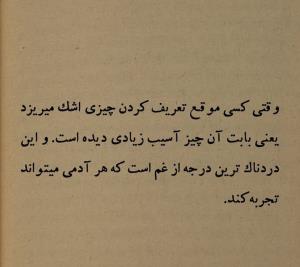 وقتی کسی موقع تعریف کردن چیزی اشك میریزد
یعنی بابت آن چیز آسیب زیادی دیده است. و این
دردناك ترین درجه از غم است که هر آدمی میتواند
تجربه کند.